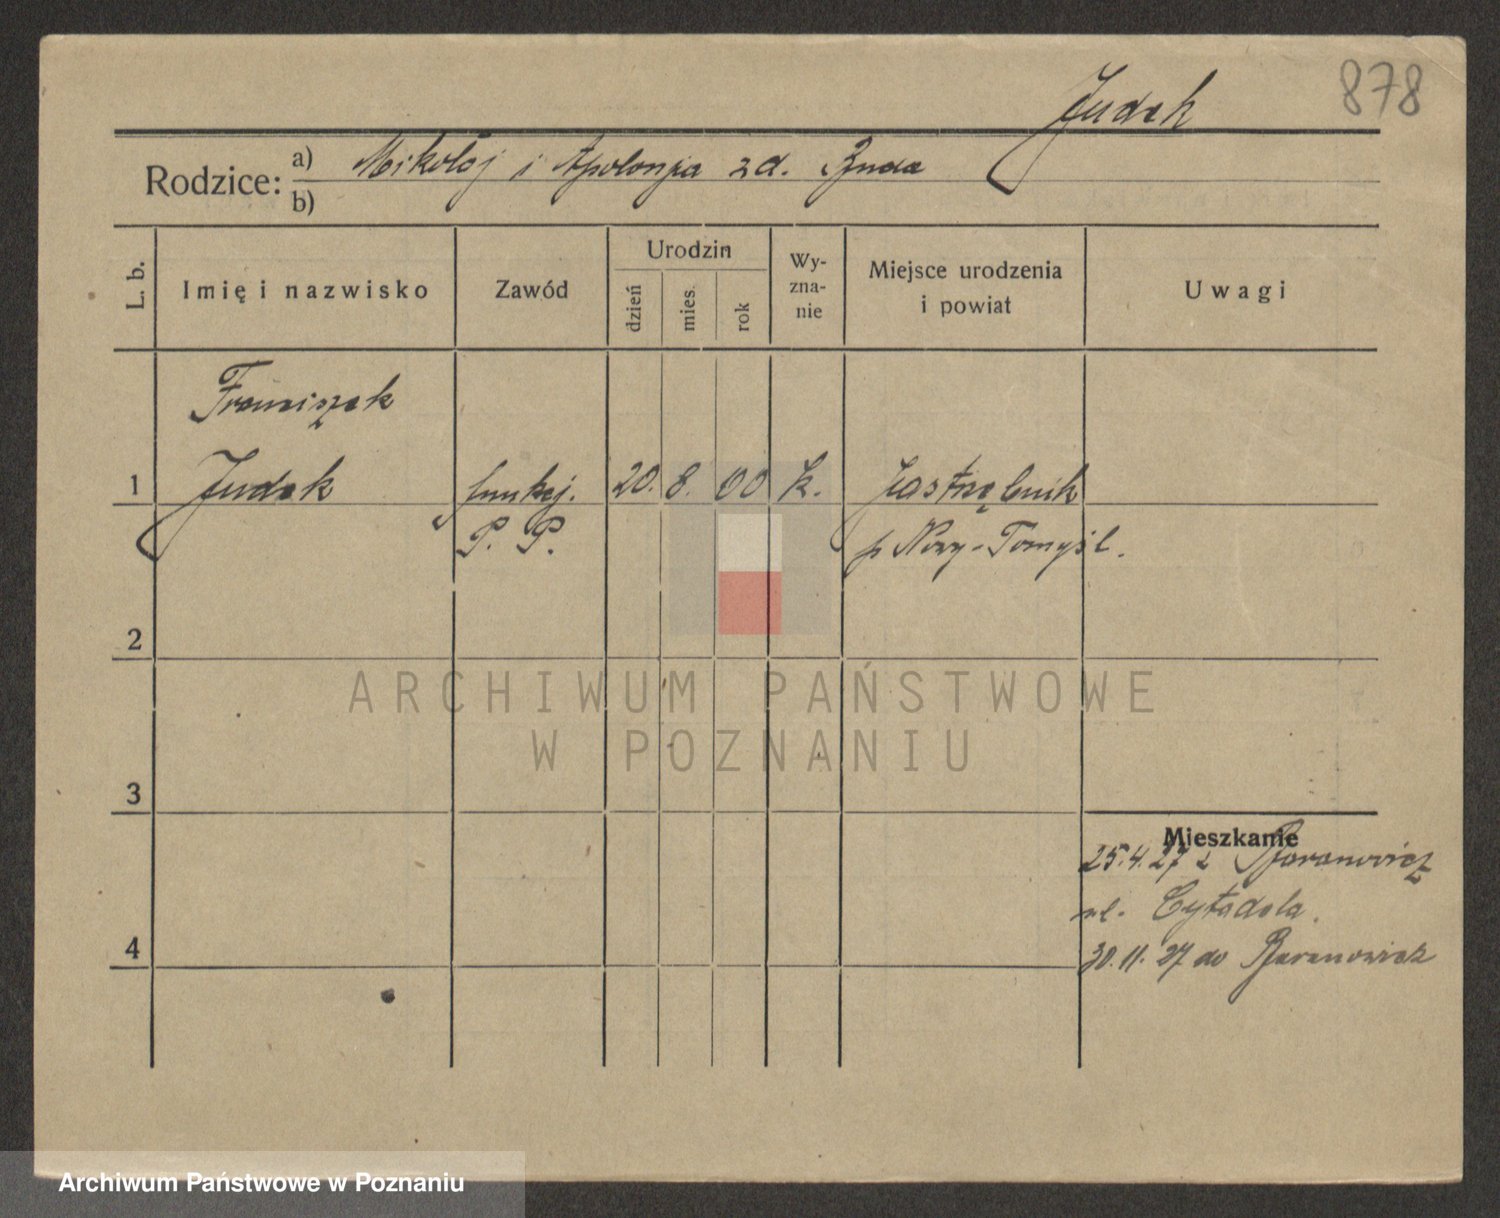 878
Judek
Rodzice: a) Mikołaj i Apolonja zd. Buda
b)
L. b.
Imię i nazwisko
Zawód
Urodzin
dzień
mies.
rok
Wy-
zna-
nie
Miejsce urodzenia
i powiat
Uwagi
Franciszek
1 Judek funkcj. 20. 8. 00 k. Jastrzębnik
P. P. p Nowy-Tomyśl.
2
ARCHIWUM PAŃSTWOWE
W POZNANIU
3
Mieszkanie
25.4.27 z Baranowicz
ul. Cytadela.
4
30.11.27 do Baranowicz
Archiwum Państwowe w Poznaniu